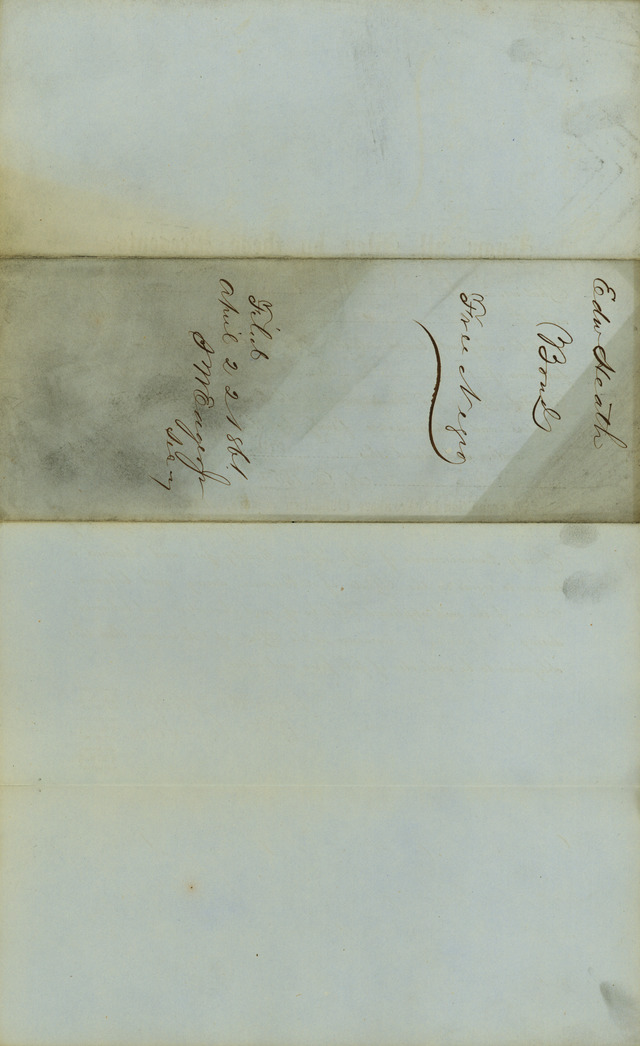 Edw Heath
Bond
Free Negro
Filed
April 22 1861